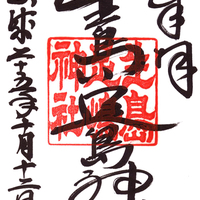 奉拝
生島足島神
生島足島神社
平成二十五年十月十二日